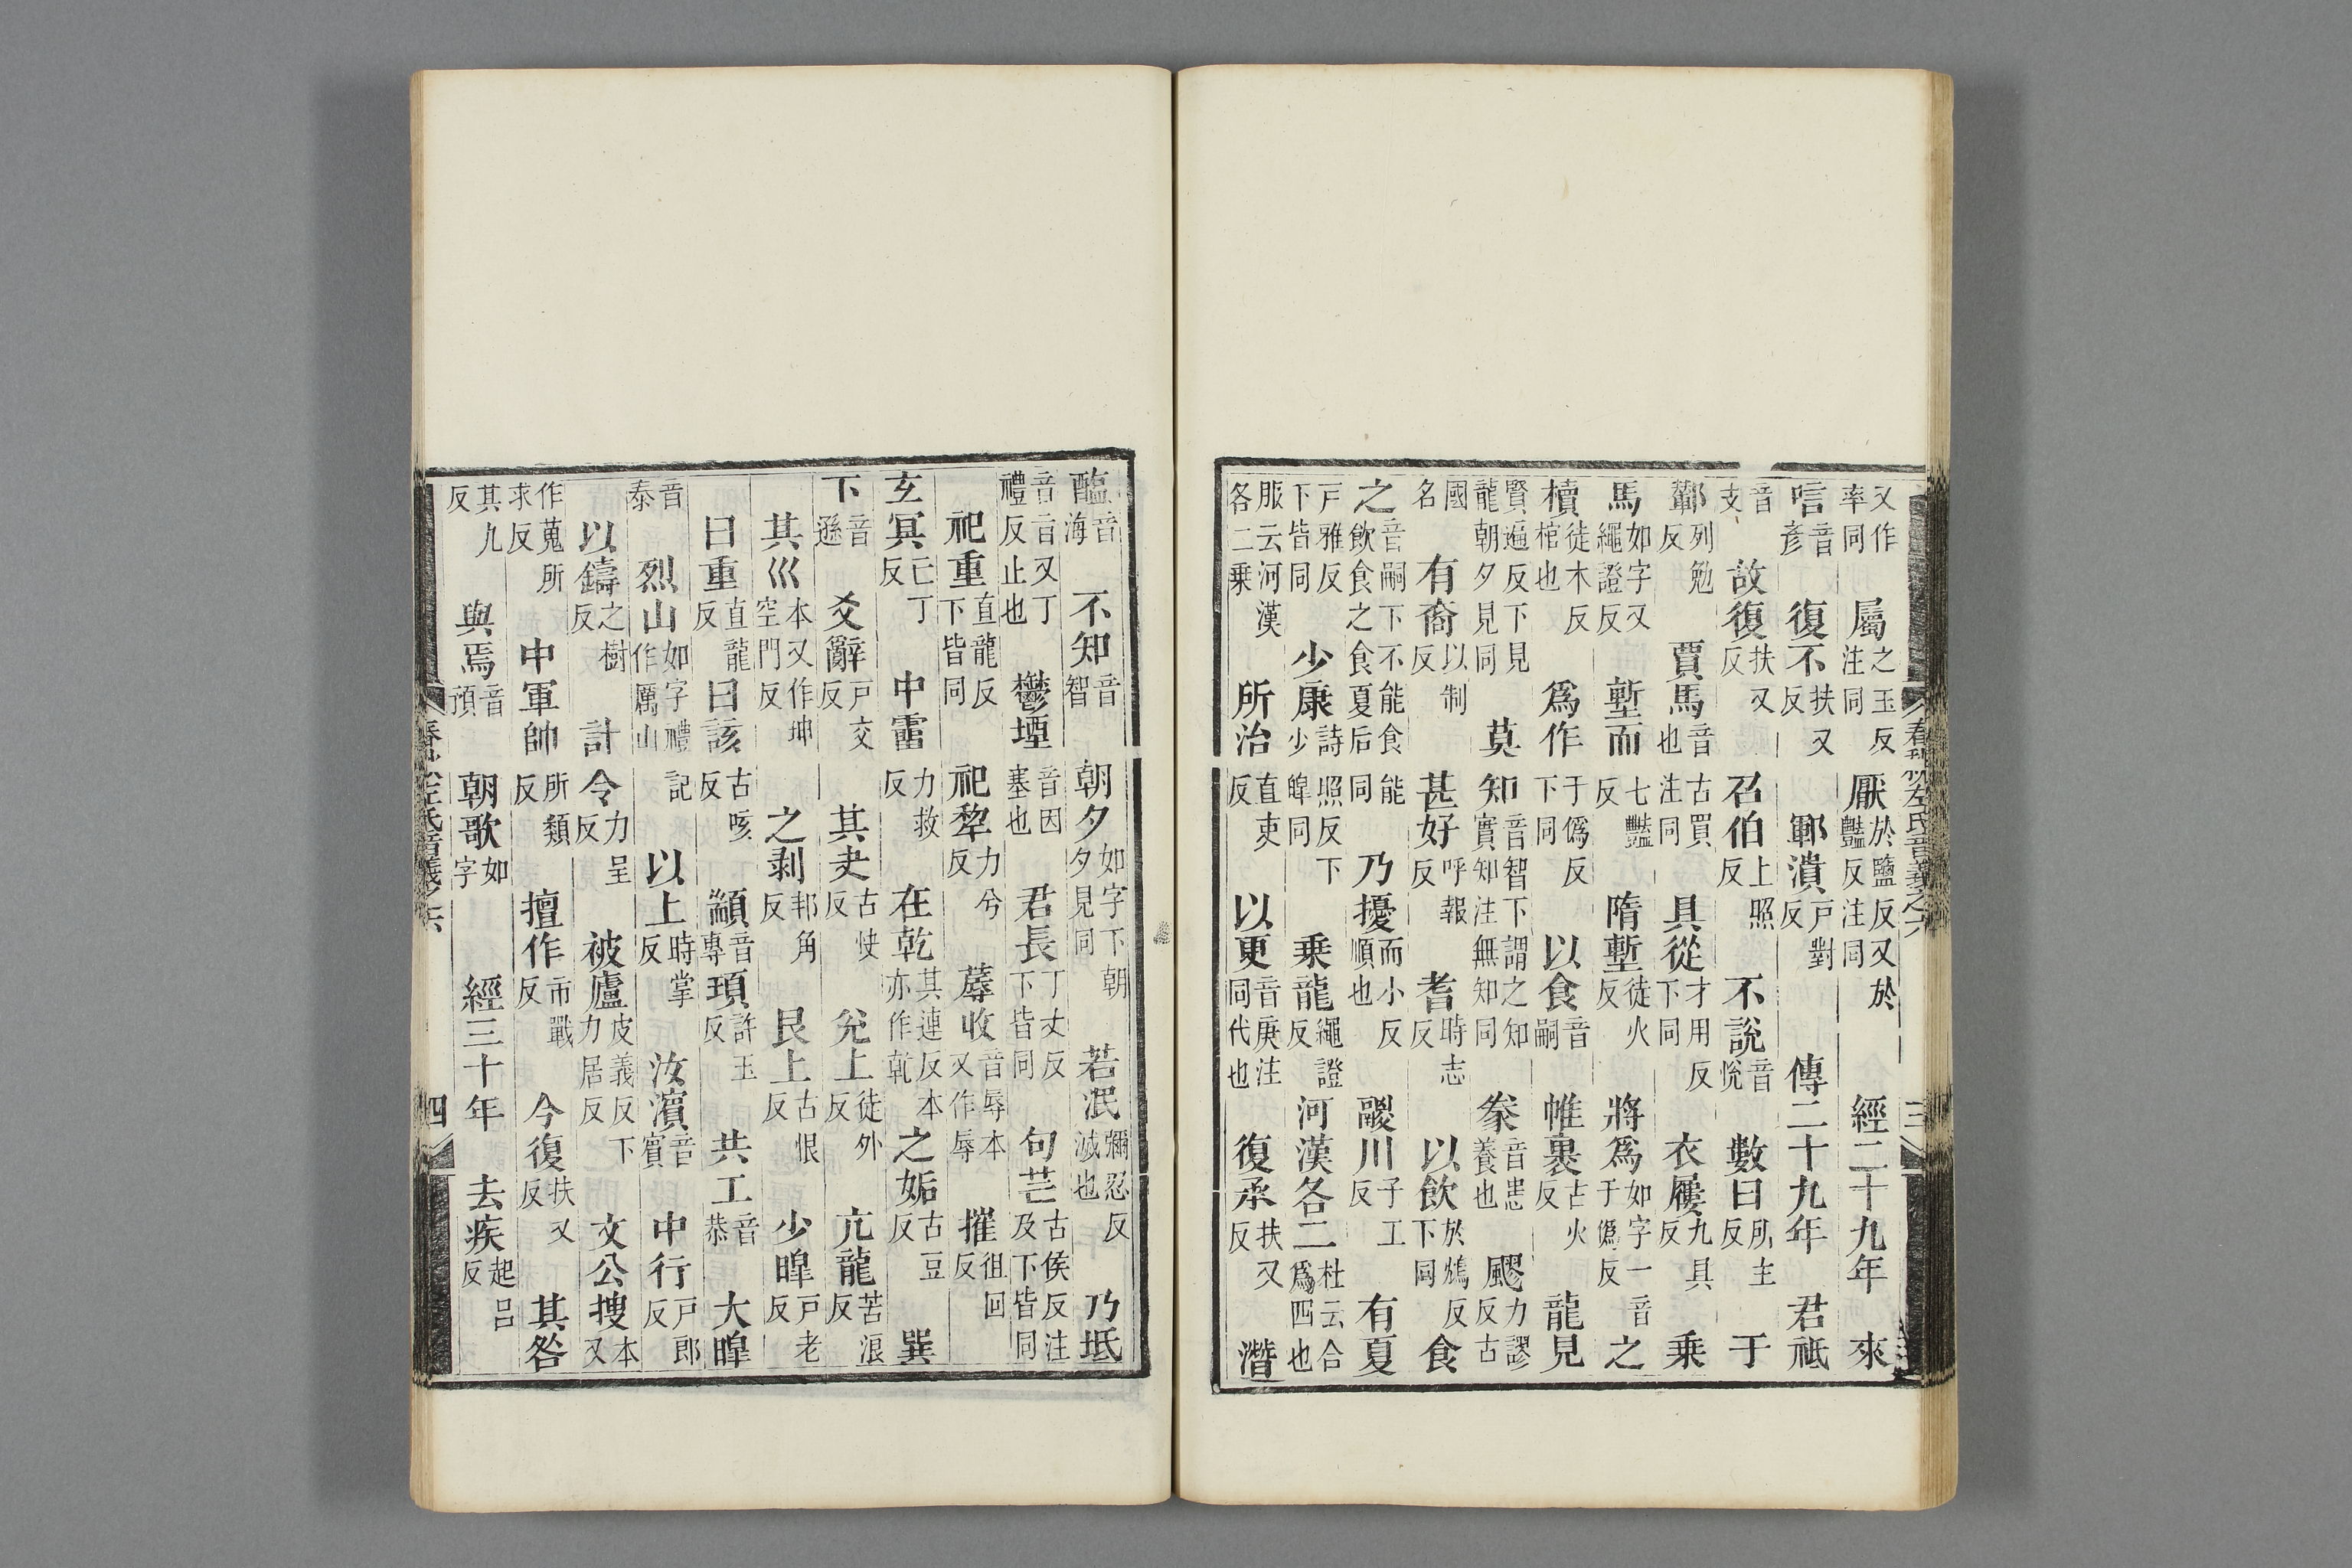 又作率同 屬之玉反注同 厭於鹽反又於豔反注同 經二十九年 來
唁音彥 復不扶又反 鄆潰戶對反 傳二十九年 君祗
音支 故復扶又反 召伯上照反 不說音悅 數日所主反 于
鄻列勉反 賈馬音古買也注同 具從才用反下同 衣屨九具反 乘
馬如字又繩證反 塹而七豔反 隋塹徒火反 將爲如字一音于僞反 之
櫝徒木反棺也 爲作于僞反下同 以食音嗣 帷裹古火反 龍見
賢遍反下見龍朝夕見同 莫知音智下謂之知實知注無知同 豢音患養也 飂力謬反古
國名 有裔以制反 甚好呼報反 耆時志反 以飲於鴆反下同 食
之音嗣下不能食飲食之食夏后同能 乃擾而小反順也 鬷川子工反 有夏
戶雅反下皆同 少康詩照反下少皥同 乘龍繩證反 河漢各二杜云合爲四也
服云河漢各二乘 所治直吏反 以更音庚注同代也 復承扶又反 潛
醢音海 不知音智 朝夕如字下朝夕見同 若泯彌忍反滅也 乃坻
音旨又丁禮反止也 鬱堙音因塞也 君長丁丈反下皆同 句芒古侯反注及下皆同
祀重直龍反下皆同 祀犂力兮反 蓐收音辱本又作辱 摧徂回反
玄冥亡丁反 中霤力救反 在乾其連反本亦作乹 之姤古豆反 巽
下音遜 爻辭戶交反 其夬古快反 兌上徒外反 亢龍苦浪反
其巛本又作坤空門反 之剥邦角反 艮上古恨反 少皥戶老反
曰重直龍反 曰該古咳反 顓音專 頊許玉反 共工音恭 大皥
音泰 烈山如字禮記作厲山 以上時掌反 汝濱音賓 中行戶郎反
以鑄之樹反 計令力呈反 被廬皮義反下力居反 文公搜本又
作蒐所求反 中軍帥所類反 擅作市戰反 今復扶又反 其咎
其九反 與焉音預 朝歌如字 經三十年 去疾起呂反
三
四